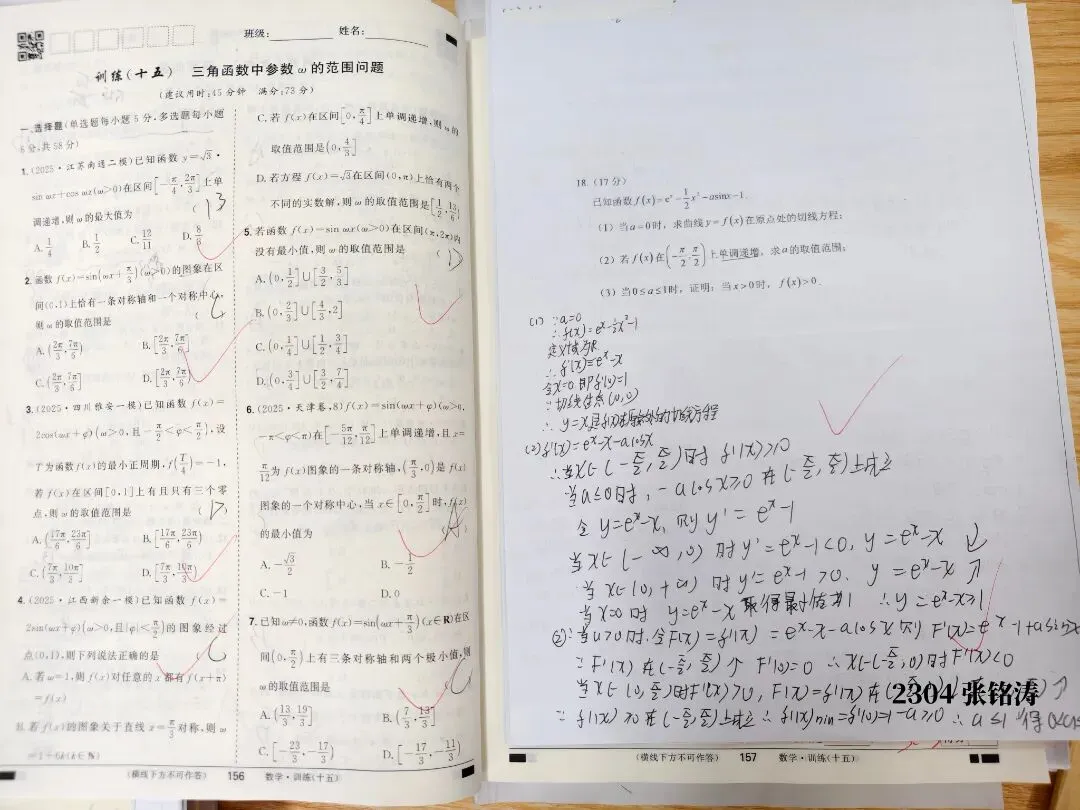 班级: 姓名:
训练(十五) 三角函数中参数ω的范围问题
(建议用时:45分钟 满分:73分)
一、选择题(单选题每小题5分,多选题每小题
6分,共58分)
1.(2025·江苏南通二模)已知函数 y=√3·
sin ωx+cos ωx(ω>0)在区间[-π/4,2π/3]上单
调递增,则ω的最大值为 ( )
A.1/4 B.1/2 C.12/11 D.8/3
2.函数f(x)=sin(ωx+π/3)(ω>0)的图象在区
间(0,1)上恰有一条对称轴和一个对称中心,
则ω的取值范围是 C
A.(2π/3,7π/6) B.[2π/3,7π/6)
C.(2π/3,7π/6] D.[2π/3,7π/6]
3.(2025·四川雅安一模)已知函数 f(x)=
2cos(ωx+φ)(ω>0,且-π/2<φ<π/2),设
T为函数f(x)的最小正周期,f(T/4)=-1,
若f(x)在区间[0,1]上有且只有三个零
点,则ω的取值范围是 (D)
A.(17π/6,23π/6] B.[17π/6,23π/6)
C.(7π/3,10π/3] D.[7π/3,10π/3)
4.(2025·江西新余一模)已知函数 f(x)=
2sin(ωx+φ)(ω>0,且|φ|<π/2)的图象经过
点(0,1),则下列说法正确的是 (C
A.若ω=1,则f(x)对任意的x都有f(x+π)
=f(x)
B.若f(x)的图象关于直线x=π/3对称,则ω
=1+6k(k∈N)
C.若f(x)在区间[0,π/4]上单调递增,则ω的
取值范围是(0,4/3]
D.若方程f(x)=√3在区间(0,π)上恰有两个
不同的实数解,则ω的取值范围是[1/2,13/6)
5.若函数f(x)=sin ωx(ω>0)在区间(π,2π)内
没有最小值,则ω的取值范围是 (D
A.(0,1/2]∪[3/2,5/3]
B.(0,2/3]∪[4/3,2]
C.(0,1/4]∪[1/2,3/4]
D.(0,3/4]∪[3/2,7/4]
6.(2025·天津卷,8)f(x)=sin(ωx+φ)(ω>0,
-π<φ<π)在[-5π/12,π/12]上单调递增,且x=
π/12为f(x)图象的一条对称轴,(π/3,0)是f(x)
图象的一个对称中心,当x∈[0,π/2]时,f(x)
的最小值为 A
A.-√3/2 B.-1/2
C.-1 D.0
7.已知ω≠0,函数f(x)=sin(ωx+π/3)(x∈R)在区
间(0,π/2)上有三条对称轴和两个极小值,则
ω的取值范围是 C
A.(13/3,19/3] B.(7/3,13/3]
C.[-23/3,-17/3) D.[-17/3,-11/3)
(横线下方不可作答) 156 数学·训练(十五)
18.(17分)
已知函数f(x)=eˣ-1/2x²-asinx-1.
(1)当a=0时,求曲线y=f(x)在原点处的切线方程;
(2)若f(x)在(-π/2,π/2)上单调递增,求a的取值范围;
(3)当0≤a≤1时,证明:当x>0时,f(x)>0.
(1) ∵a=0
∴f(x)=eˣ-1/2x²-1
定义域为R
∴f'(x)=eˣ-x
令x=0 即f'(0)=1
∵切线过点(0,0)
∴y=x是f(x)在原点处的切线方程
(2)f'(x)=eˣ-x-acosx
∴当x∈(-π/2,π/2)时 f'(x)≥0
当a≤0时,-acosx≥0在(-π/2,π/2)上成立
令y=eˣ-x,则y'=eˣ-1
当x∈(-∞,0)时y'=eˣ-1<0, y=eˣ-x ↓
当x∈(0,+∞)时y'=eˣ-1>0, y=eˣ-x ↑
当x=0时 y=eˣ-x取得最小值为1 ∴y=eˣ-x≥1
②∵当a>0时,令F(x)=f'(x)=eˣ-x-acosx 则F'(x)=eˣ-1+asinx
∵F'(x)在(-π/2,π/2)↑ F'(0)=0 ∴x∈(-π/2,0)时F'(x)<0
当x∈(0,π/2)时F'(x)>0, F(x)=f'(x)在 ↑
∵f'(x)≥0在(-π/2,π/2)上成立 ∴f'(x)min=f'(0)=1-a≥0 ∴a≤1 得
2304 张铭涛
(横线下方不可作答) 157 数学·训练(十五)